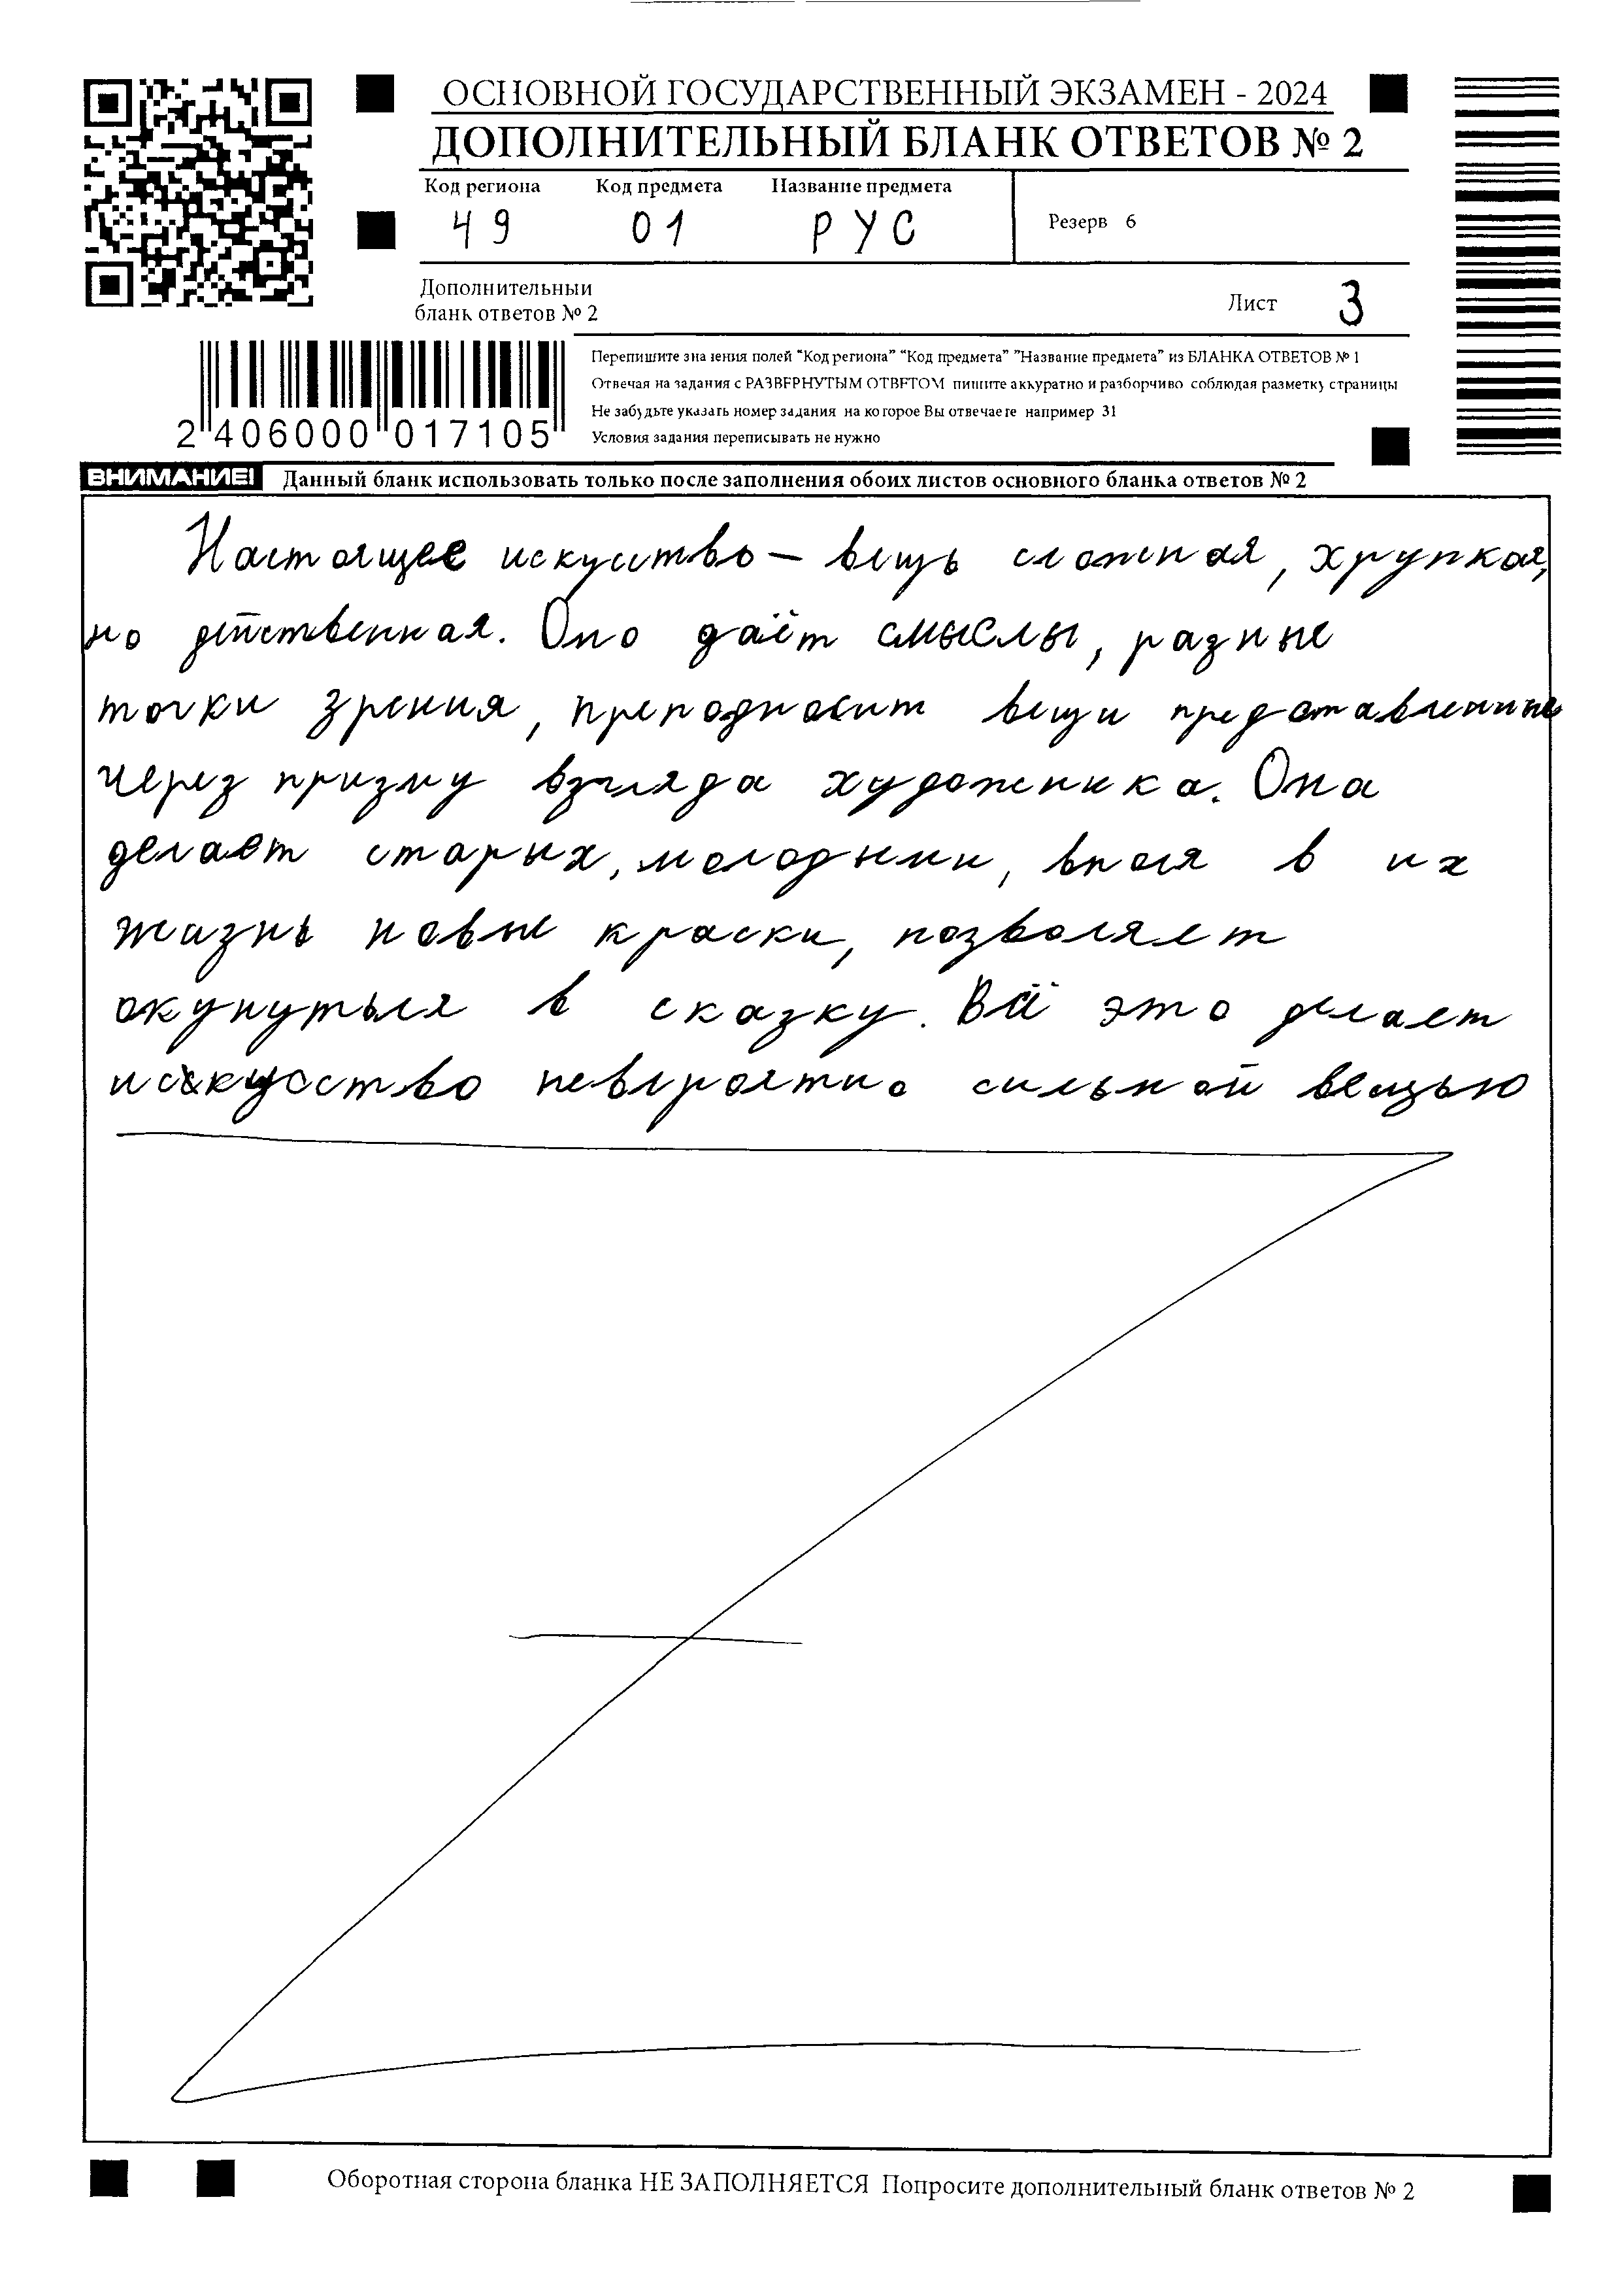 ОСНОВНОЙ ГОСУДАРСТВЕННЫЙ ЭКЗАМЕН - 2024
ДОПОЛНИТЕЛЬНЫЙ БЛАНК ОТВЕТОВ № 2
Код региона Код предмета Название предмета
49 01 РУС
Резерв 6
Дополнительный
бланк ответов № 2
Лист 3
Перепишите значения полей "Код региона" "Код предмета" "Название предмета" из БЛАНКА ОТВЕТОВ № 1
Отвечая на задания с РАЗВЕРНУТЫМ ОТВЕТОМ пишите аккуратно и разборчиво соблюдая разметку страницы
Не забудьте указать номер задания на которое Вы отвечаете например 31
Условия задания переписывать не нужно
2 406000 017105
ВНИМАНИЕ! Данный бланк использовать только после заполнения обоих листов основного бланка ответов № 2
Настоящее искуство – вещь сложная, хрупкая,
но действенная. Оно даёт смыслы, разные
точки зрения, преподносит вещи представленные
через призму взгляда художника. Она
делает старых, молодыми, внося в их
жизнь новые краски, позволяет
окунуться в сказку. Всё это делает
искусство невероятно сильной вещью
Оборотная сторона бланка НЕ ЗАПОЛНЯЕТСЯ Попросите дополнительный бланк ответов № 2